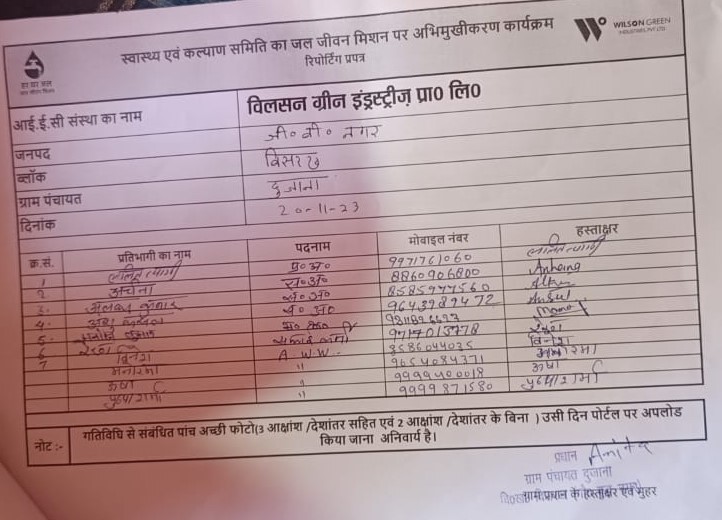 स्वास्थ्य एवं कल्याण समिति का जल जीवन मिशन पर अभिमुखीकरण कार्यक्रम
रिपोर्टिंग प्रपत्र
WILSON GREEN
INDUSTRIES PVT LTD
हर घर जल
आई.ई.सी संस्था का नाम विलसन ग्रीन इंडस्ट्रीज़ प्रा0 लि0
जनपद जी० बी० नगर
ब्लॉक बिसरख
ग्राम पंचायत दुजाना
दिनांक 20-11-23
क्र.सं. प्रतिभागी का नाम पदनाम मोबाइल नंबर हस्ताक्षर
1 ललित त्यागी प्र० अ० 9971761060 ललित त्यागी
2. अर्चना स० अ० 8860906800 Archana
3. स० अ० 8585977560
4. स० अ० 9643989472
5. मनोज कुमार स० अ० Manoj
6 रेखा सफाई कर्मी 9717013778 रेखा
7 विनेश A.W.W. 8586044035 विनेश
मनोरमा " 9654084371 मनोरमा
ऊषा " 9999400018 ऊषा
पुष्पा शर्मा " 9999871580 पुष्पा शर्मा
नोट :- गतिविधि से संबंधित पांच अच्छी फोटो(3 आक्षांश /देशांतर सहित एवं 2 आक्षांश /देशांतर के बिना ) उसी दिन पोर्टल पर अपलोड
किया जाना अनिवार्य है।
प्रधान Anita
ग्राम पंचायत दुजाना
ग्राम प्रधान के हस्ताक्षर एवं मुहर